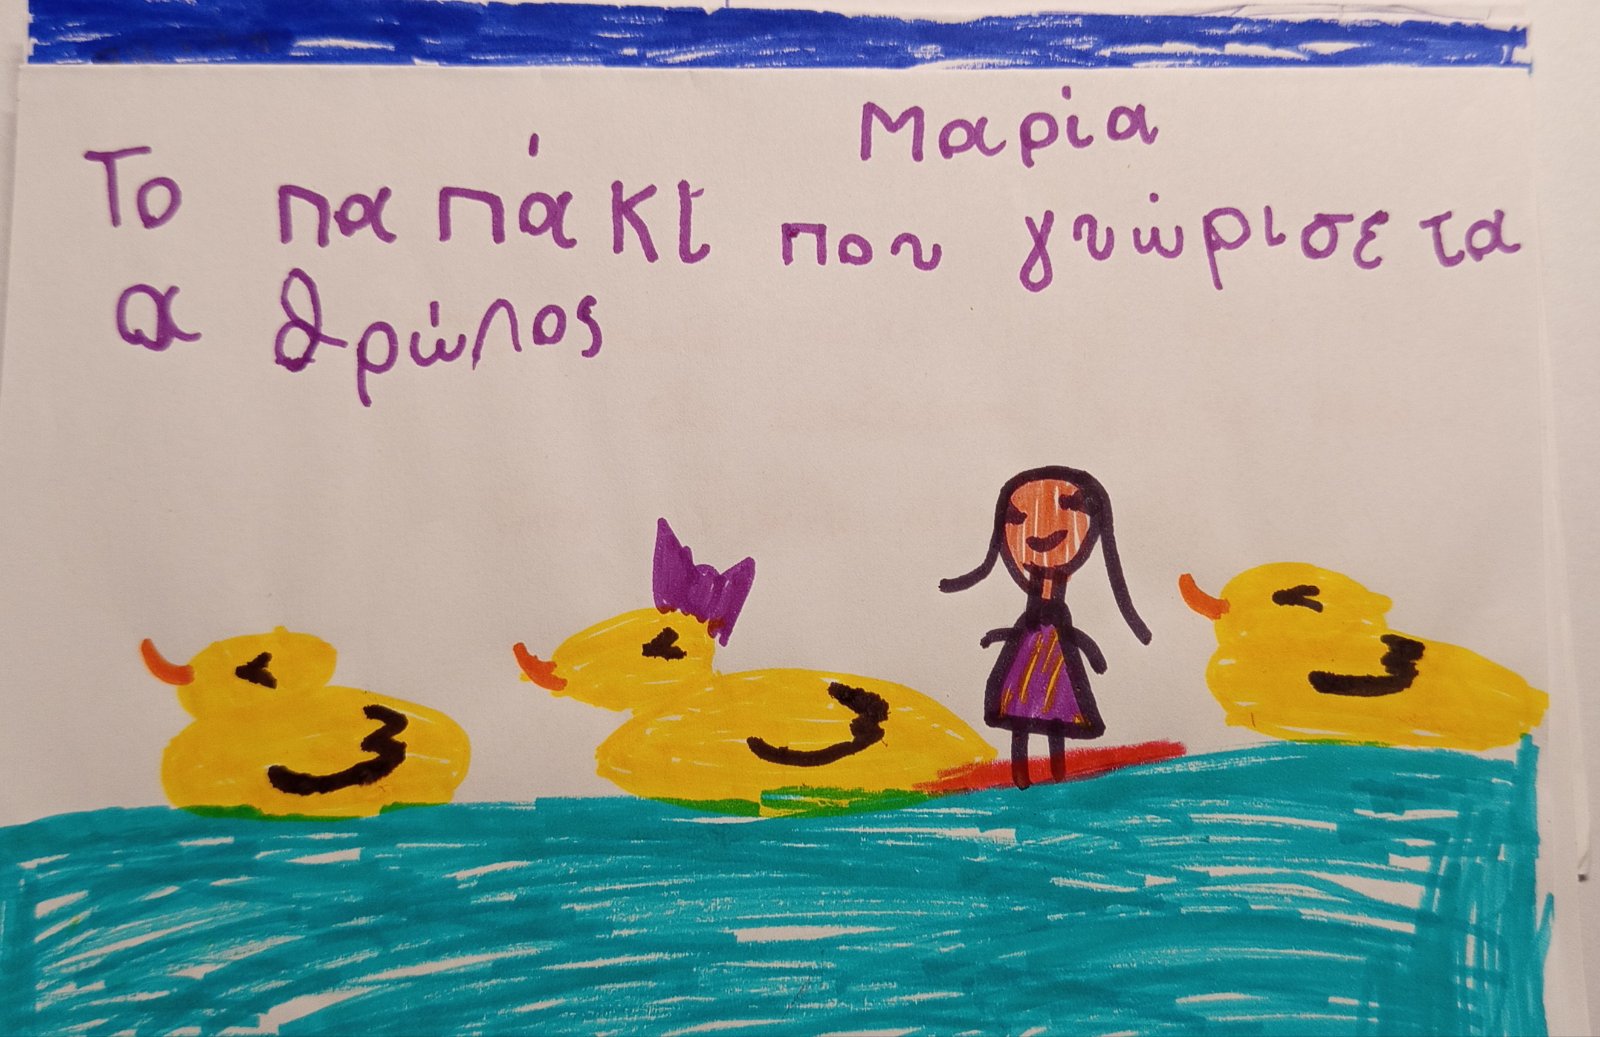 Μαρία
Το παπάκι που γνώρισε τα
α θρώλος